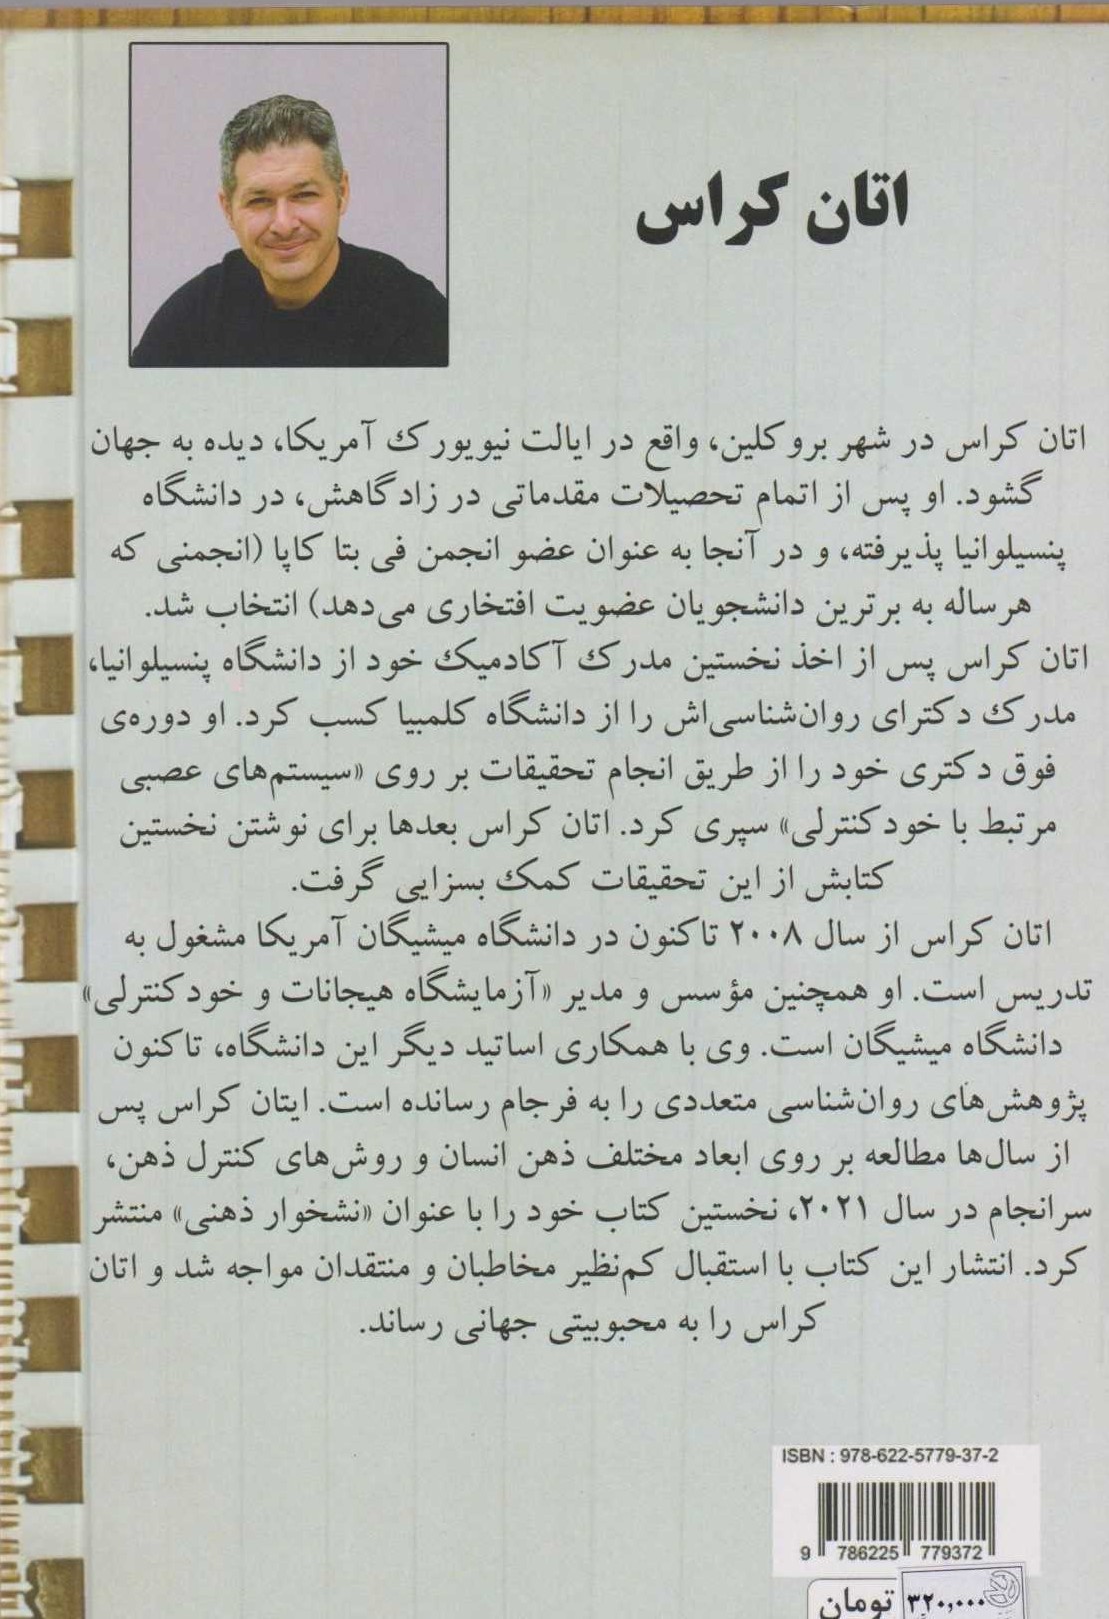 اتان کراس
اتان کراس در شهر بروکلین، واقع در ایالت نیویورک آمریکا، دیده به جهان
گشود. او پس از اتمام تحصیلات مقدماتی در زادگاهش، در دانشگاه
پنسیلوانیا پذیرفته، و در آنجا به عنوان عضو انجمن فی بتا کاپا (انجمنی که
هرساله به برترین دانشجویان عضویت افتخاری می‌دهد) انتخاب شد.
اتان کراس پس از اخذ نخستین مدرک آکادمیک خود از دانشگاه پنسیلوانیا،
مدرک دکترای روان‌شناسی‌اش را از دانشگاه کلمبیا کسب کرد. او دوره‌ی
فوق دکتری خود را از طریق انجام تحقیقات بر روی «سیستم‌های عصبی
مرتبط با خودکنترلی» سپری کرد. اتان کراس بعدها برای نوشتن نخستین
کتابش از این تحقیقات کمک بسزایی گرفت.
اتان کراس از سال ۲۰۰۸ تاکنون در دانشگاه میشیگان آمریکا مشغول به
تدریس است. او همچنین مؤسس و مدیر «آزمایشگاه هیجانات و خودکنترلی»
دانشگاه میشیگان است. وی با همکاری اساتید دیگر این دانشگاه، تاکنون
پژوهش‌های روان‌شناسی متعددی را به فرجام رسانده است. ایتان کراس پس
از سال‌ها مطالعه بر روی ابعاد مختلف ذهن انسان و روش‌های کنترل ذهن،
سرانجام در سال ۲۰۲۱، نخستین کتاب خود را با عنوان «نشخوار ذهنی» منتشر
کرد. انتشار این کتاب با استقبال کم‌نظیر مخاطبان و منتقدان مواجه شد و اتان
کراس را به محبوبیتی جهانی رساند.
ISBN : 978-622-5779-37-2
9 786225 779372
۳۲۰,۰۰۰ تومان